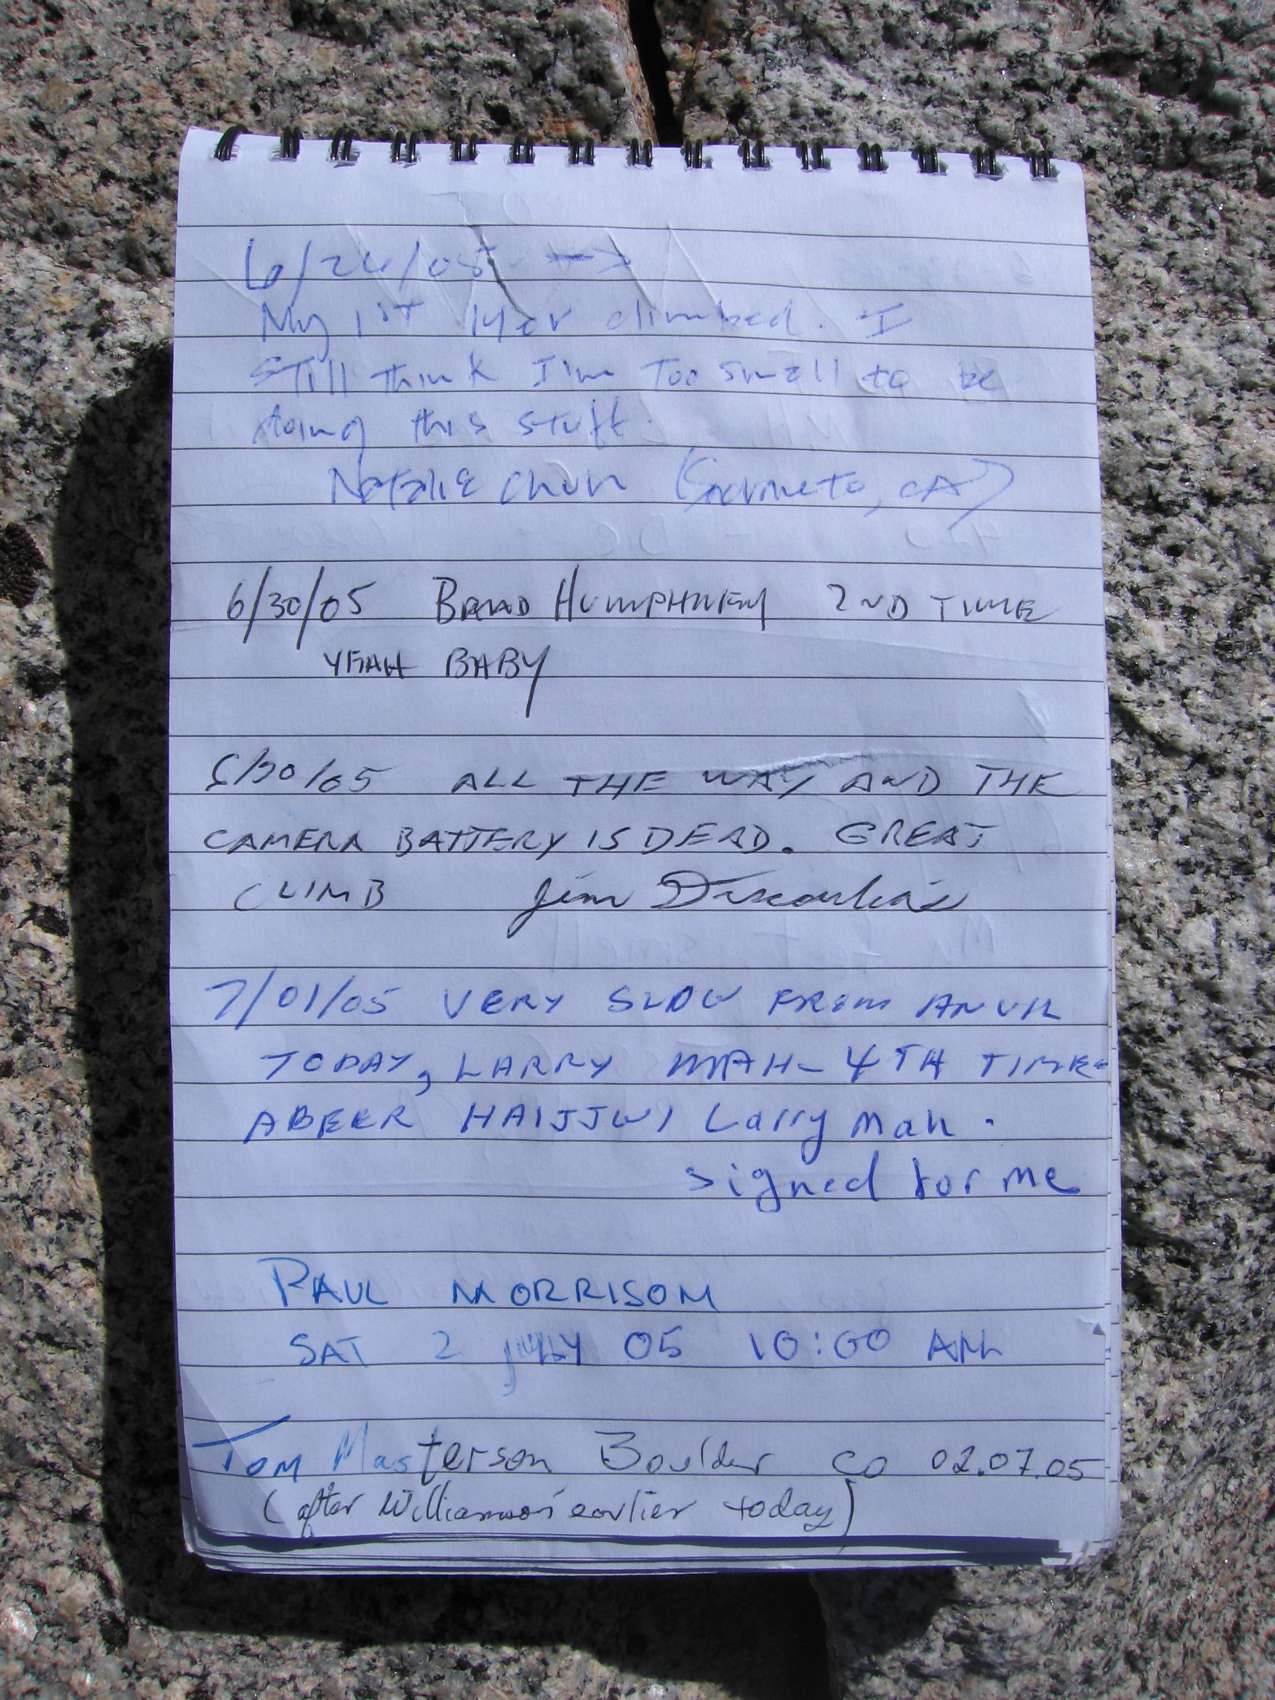 6/26/05 →
My 1ST 14er climbed. I
still think I'm too small to be
doing this stuff.
Natalie Chun (Sacrmeto, CA)
6/30/05 BRAD HUMPHREY 2ND TIME
YEAH BABY
6/30/05 ALL THE WAY AND THE
CAMERA BATTERY IS DEAD. GREAT
CLIMB Jim
7/01/05 VERY SLOW FROM ANVIL
TODAY, LARRY MAH - 4TH TIME -
ABEER HAIJJWI Larry Mah.
signed for me
PAUL MORRISON
SAT 2 JULY 05 10:00 AM
Tom Masterson Boulder CO 02.07.05
(after Williamson earlier today)